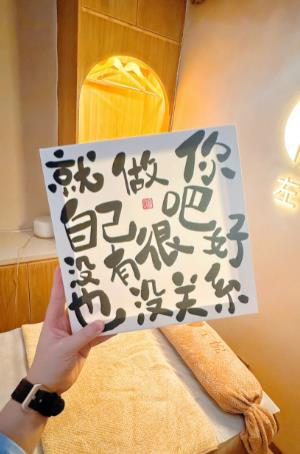 就做你
自己吧
没有很好
也没关系
左